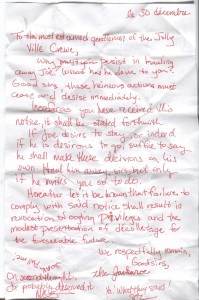 le 30 décembre
To the most esteemed gentlemen of the Jolly
Ville Crewe,
Why must you persist in hauling
away Joe? What has he done to you?
Good sirs, these heinous actions must
cease and desist immediately.
Once you have received this
notice, it shall be stated forthwith:
If Joe desire to stay, or indeed
if he is desirous to go, suffice to say
he shall make these decisions on his
own. Haul him away, sirs, but only
if he wills you so to do!
Hereafter let it be known that failure to
comply with said notice shall result in
revocation of coofing privileges and the
modest presentation of décolletage for
the foreseeable future.
We respectfully remain,
Goodsirs,
The
On second thought,
he probably deserved it.
Ya. What they said!